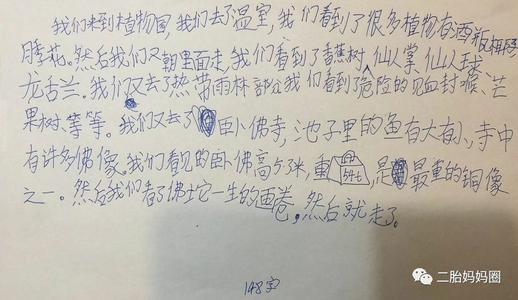 我们来到植物园,我们去了温室,我们看到了很多植物有酒瓶椰
月季花。然后我们又朝里面走,我们看到了香蕉树、仙人掌、仙人球、
龙舌兰。我们又去了热带雨林部分我们看到了危险的见血封喉、芒
果树、等等。我们又去了卧佛寺,池子里的鱼有大有小,寺中
有许多佛像。我们看见的卧佛高5.3米,重54t,是最重的铜像
之一。然后我们看了佛一生的画卷,然后就走了。
148字
二胎妈妈圈